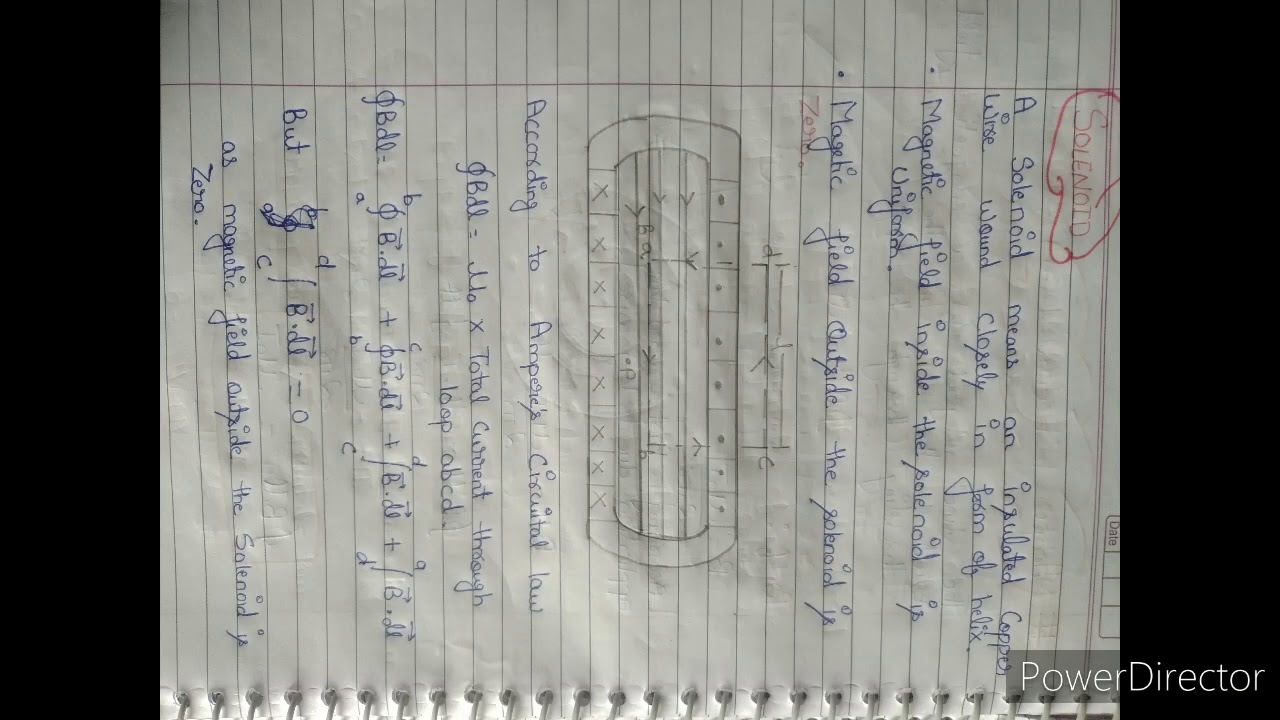 Date
SOLENOID
A Solenoid means an insulated Copper
Wire wound closely in form of helix.
• Magnetic field inside the solenoid is
Uniform.
• Magetic field Outside the solenoid is
Zero.
d c
• • • • • • • •
B a b
.P
× × × × × × × ×
According to Ampere's Circuital law
∮Bdl = μ₀ × Total current through
loop abcd.
∮Bdl = ∮ₐᵇ B⃗.dl⃗ + ∮_b^c B⃗.dl⃗ + ∫_c^d B⃗.dl⃗ + ∫_d^a B⃗.dl⃗
But ∫_c^d B⃗.dl⃗ = 0
as magnetic field outside the Solenoid is
Zero.
PowerDirector